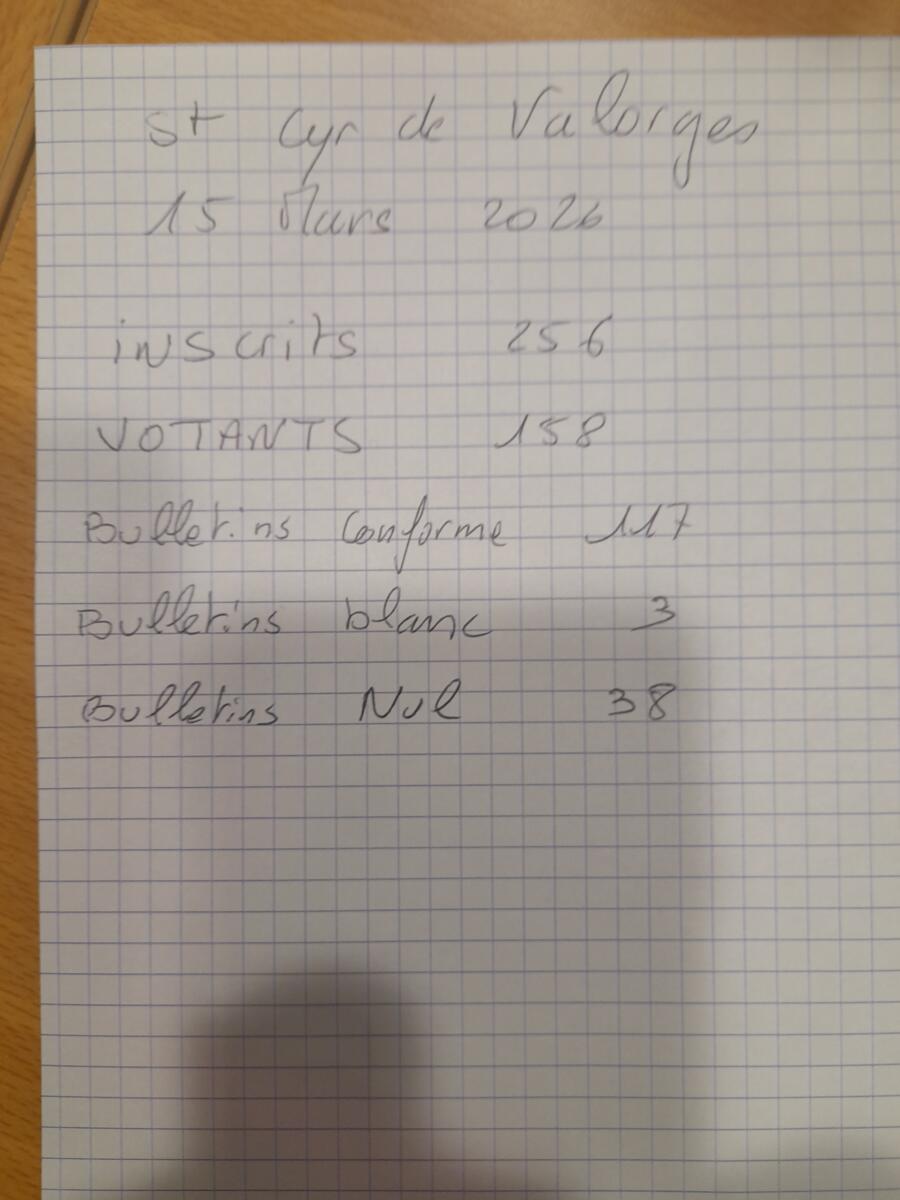 St Cyr de Valorges
15 Mars 2026
inscrits 256
VOTANTS 158
Bulletins Conforme 117
Bulletins blanc 3
Bulletins Nul 38